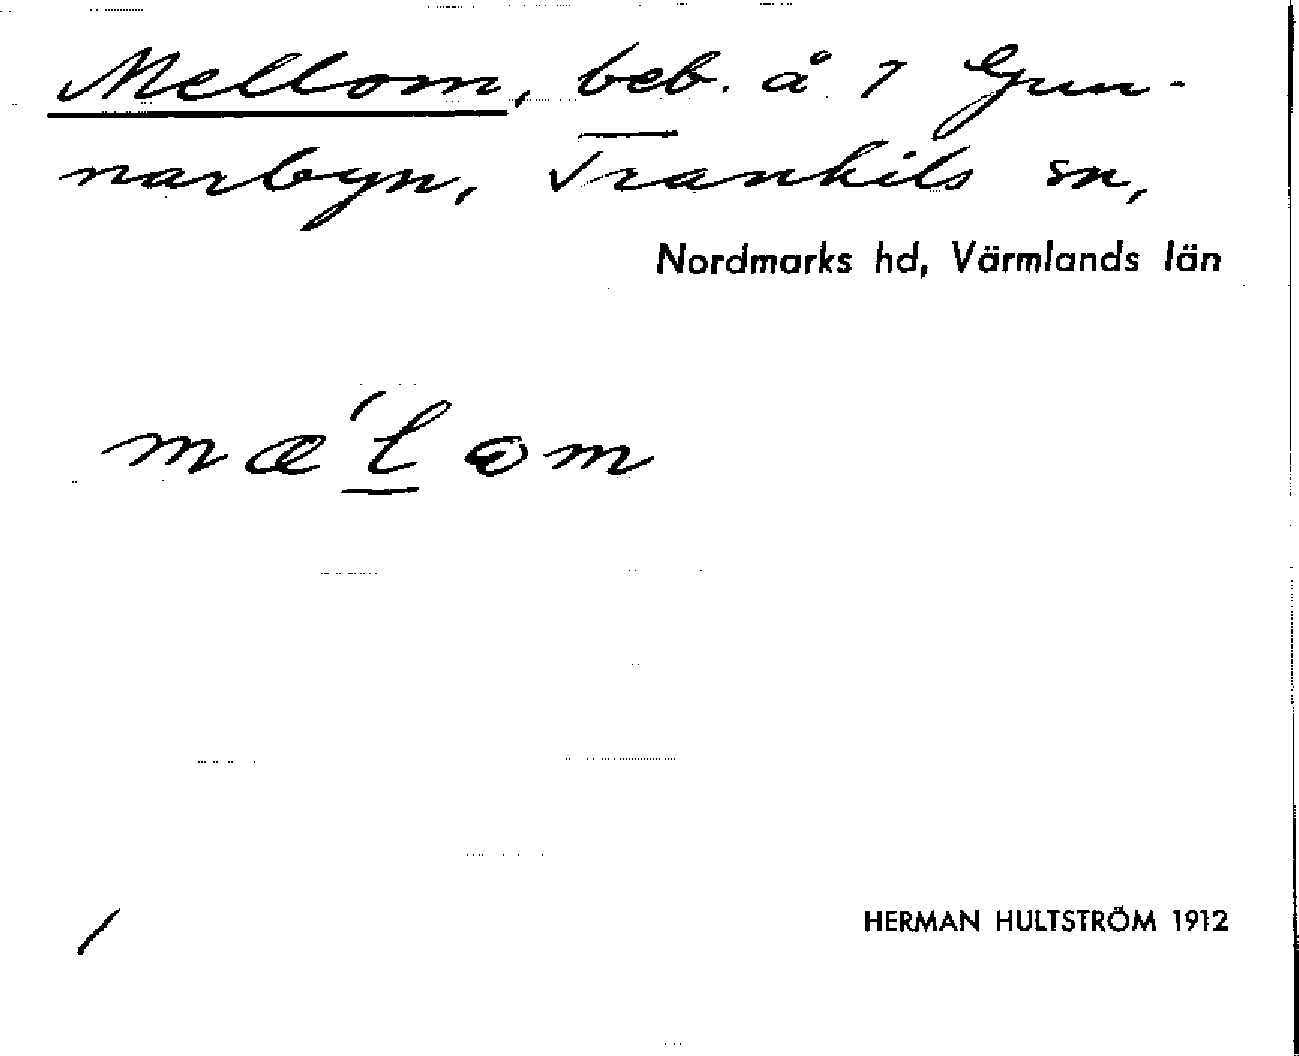 Mellom, beb. å 7 Gun-
narbyn, Trankils sn,
Nordmarks hd, Värmlands län
mæ´l om
/
HERMAN HULTSTRÖM 1912